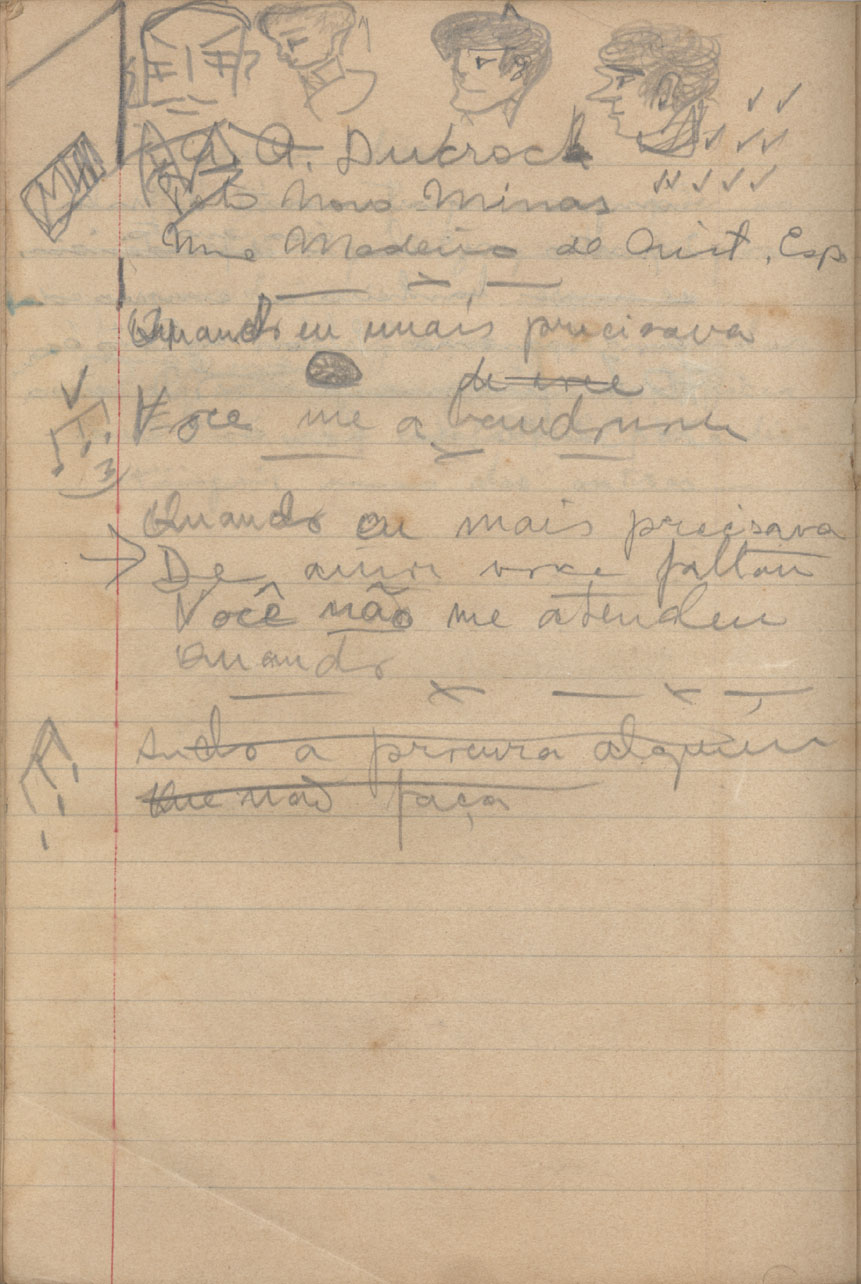 A. A. Dukrock
Novo Minas
Madeira de Crist. Esp
Quando eu mais precisava
de voce
Voce me a bandonou
Quando eu mais precisava
De amor voce faltou
Você não me atendeu
Quando
Ando a procura alguém
Que não faça